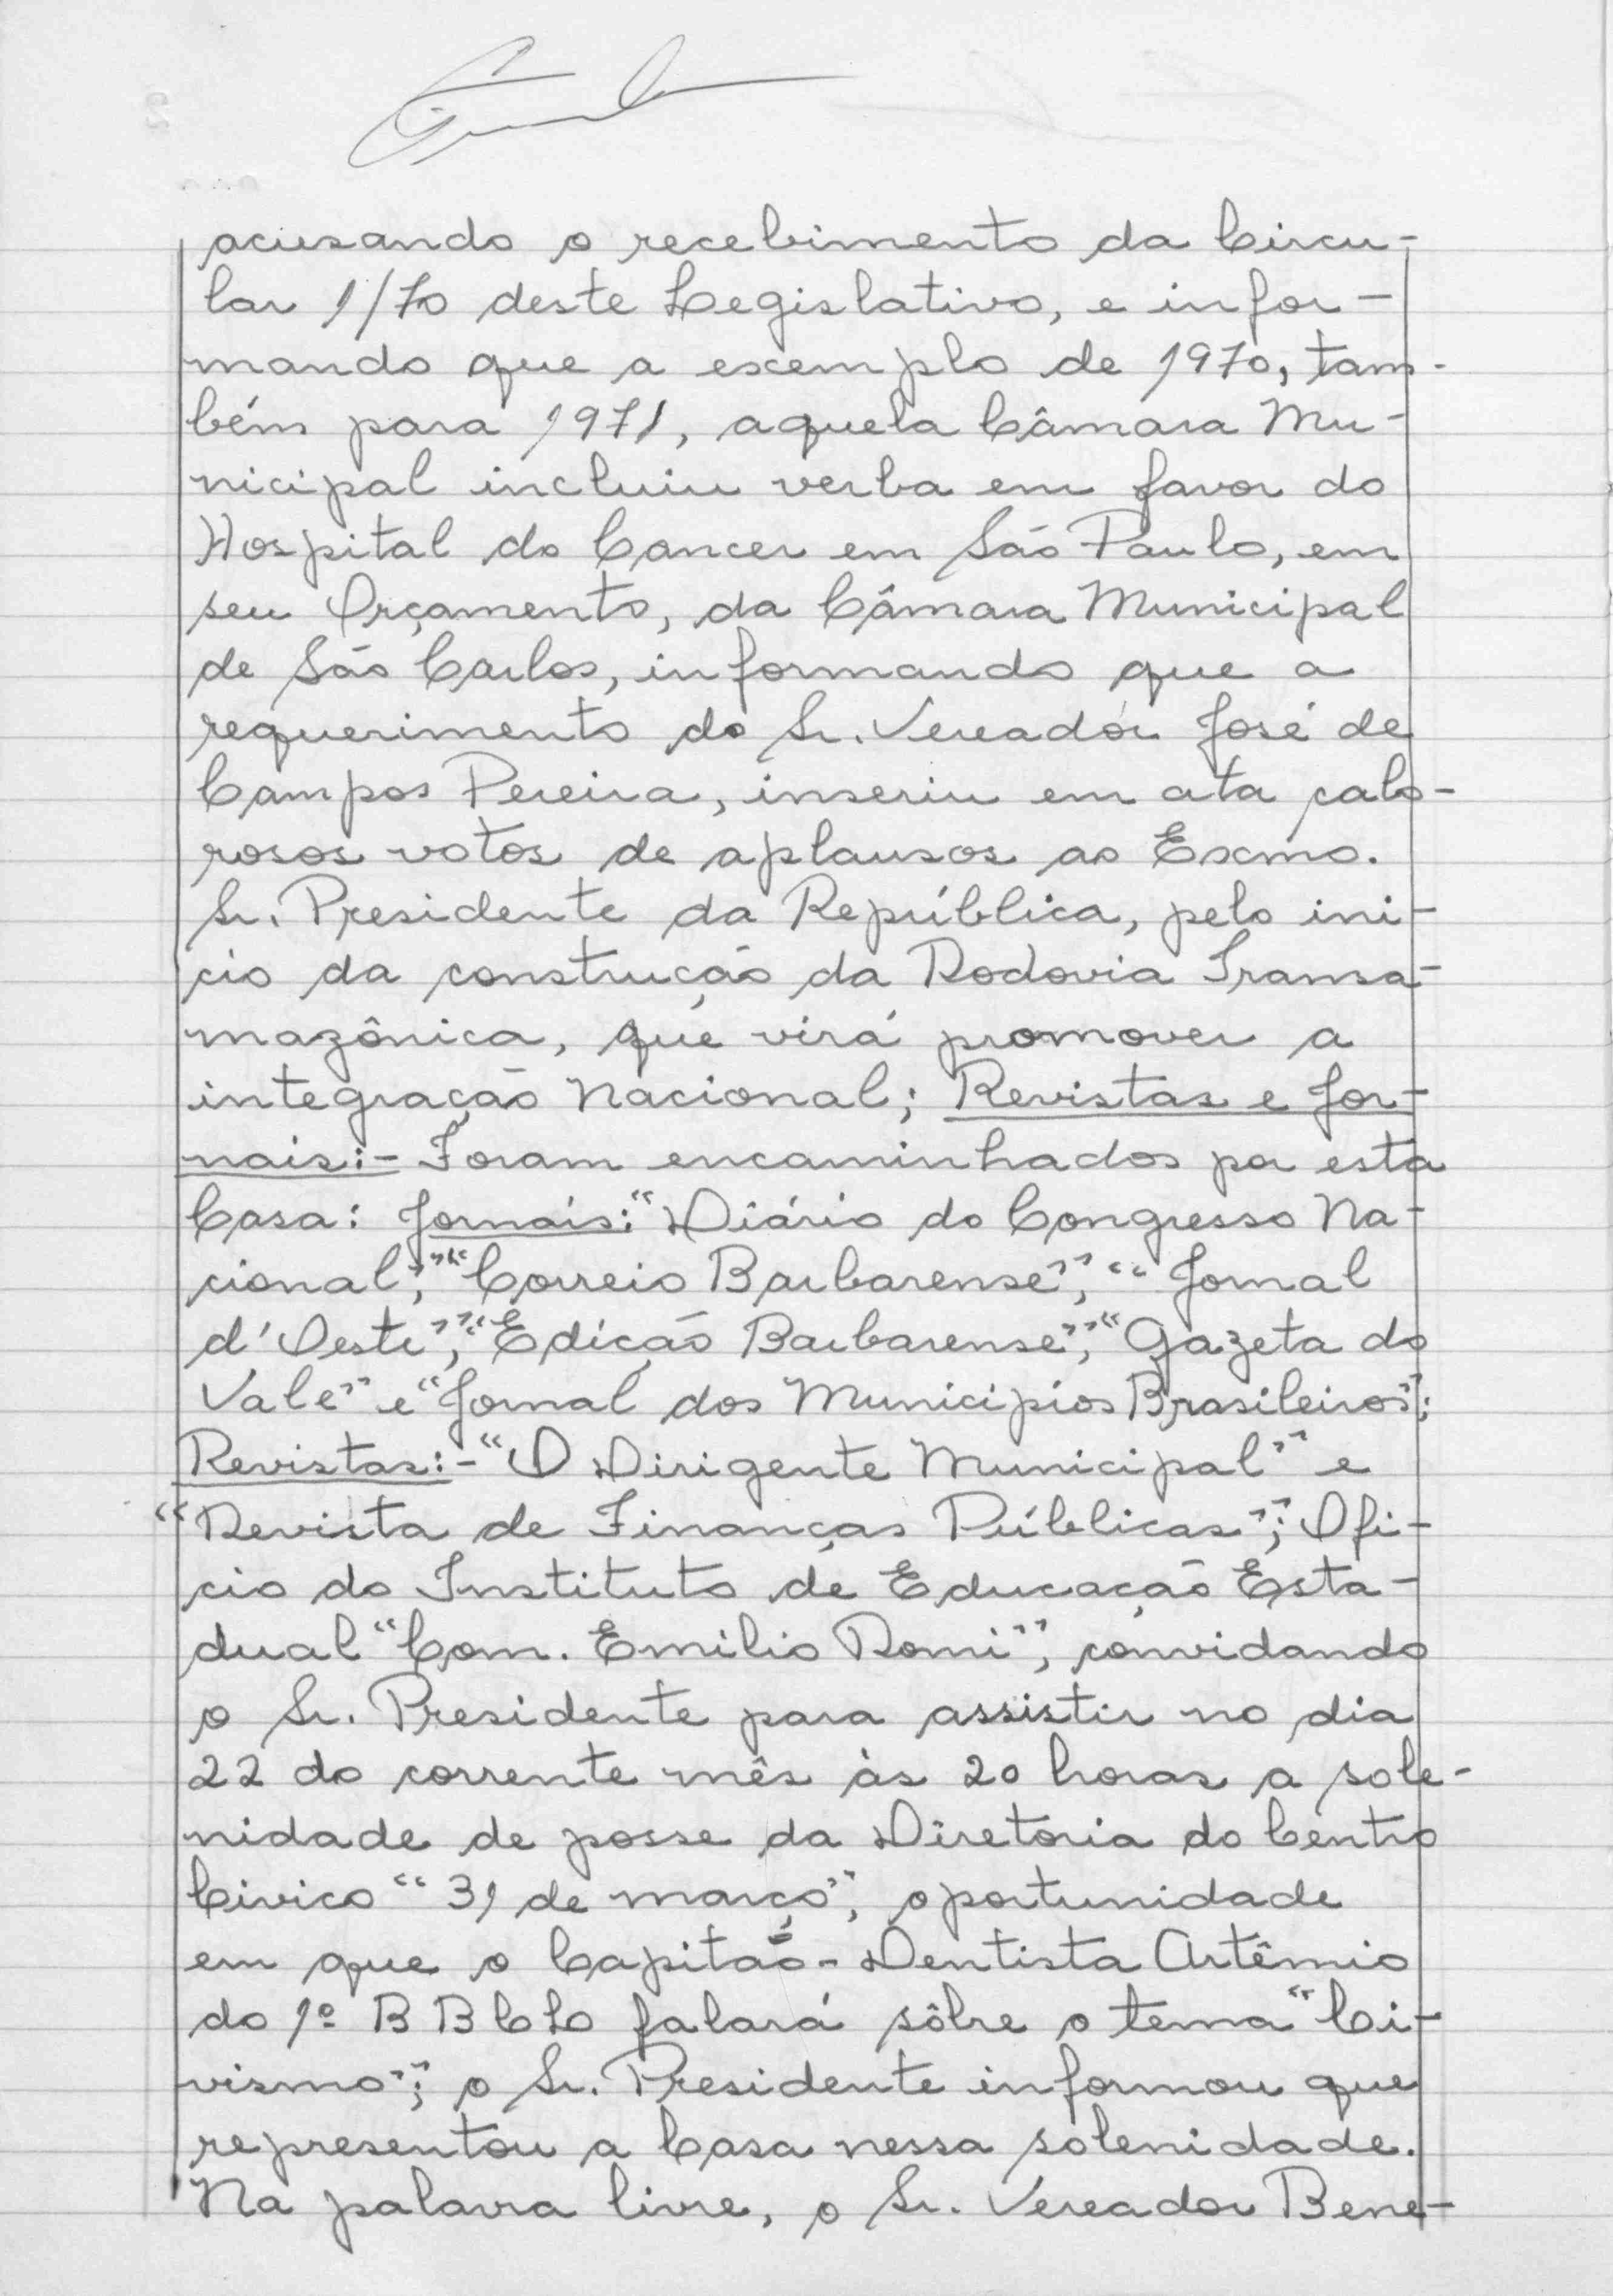 acusando o recebimento da Circu-
lar 1/70 deste Legislativo, e infor-
mando que a exemplo de 1970, tam-
bém para 1971, aquela Câmara Mu-
nicipal incluiu verba em favor do
Hospital do Cancer em São Paulo, em
seu Orçamento, da Câmara Municipal
de São Carlos, informando que a
requerimento do Sr. Vereador José de
Campos Pereira, inseriu em ata calo-
rosos votos de aplausos ao Exmo.
Sr. Presidente da República, pelo iní-
cio da construção da Rodovia Transa-
mazônica, que virá promover a
integração Nacional; Revistas e Jor-
nais:- Foram encaminhados por esta
Casa: Jornais: "Diário do Congresso Na-
cional", "Correio Barbarense", "Jornal
d'Oeste", "Edição Barbarense", "Gazeta do
Vale" e "Jornal dos Municípios Brasileiros";
Revistas:- "O Dirigente Municipal" e
"Revista de Finanças Públicas"; Ofí-
cio do Instituto de Educação Esta-
dual "Com. Emilio Romi", convidando
o Sr. Presidente para assistir no dia
22 do corrente mês às 20 horas a sole-
nidade de posse da Diretoria do Centro
Cívico "31 de março", oportunidade
em que o Capitão-Dentista Artêmio
do 1º B B C L falará sôbre o tema "Ci-
vismo"; o Sr. Presidente informou que
representou a Casa nessa solenidade.
Na palavra livre, o Sr. Vereador Bene-